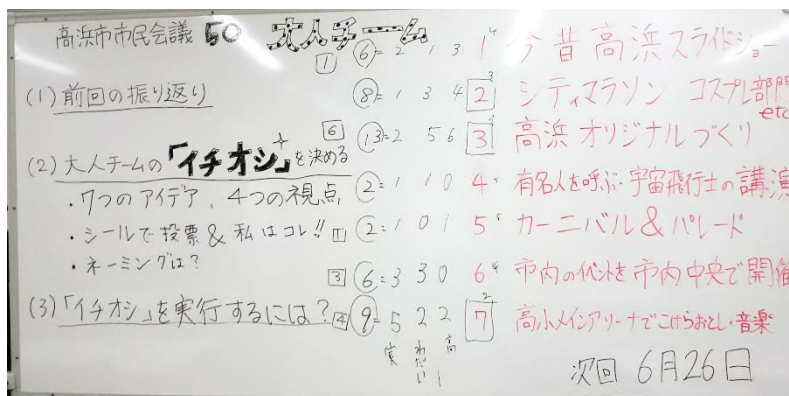 高浜市市民会議 50 大人チーム
(1) 前回の振り返り
(2) 大人チームの「イチオシ」を決める
・7つのアイデア、4つの視点
・シールで投票 & 私はコレ!!
・ネーミングは?
(3) 「イチオシ」を実行するには?
1 6=2 1 3 1 今昔高浜スライドショー
8=1 3 4 2 シティマラソン コスプレ部門
etc
6 13=2 5 6 3 高浜オリジナルづくり
2=1 1 0 4 有名人を呼ぶ・宇宙飛行士の講演
1 2=1 0 1 5 カーニバル&パレード
3 6=3 3 0 6 市内のイベントを市内中央で開催
4 9=5 2 2 7 高小メインアリーナでこけらおとし・音楽
実 わだい 高
次回 6月26日